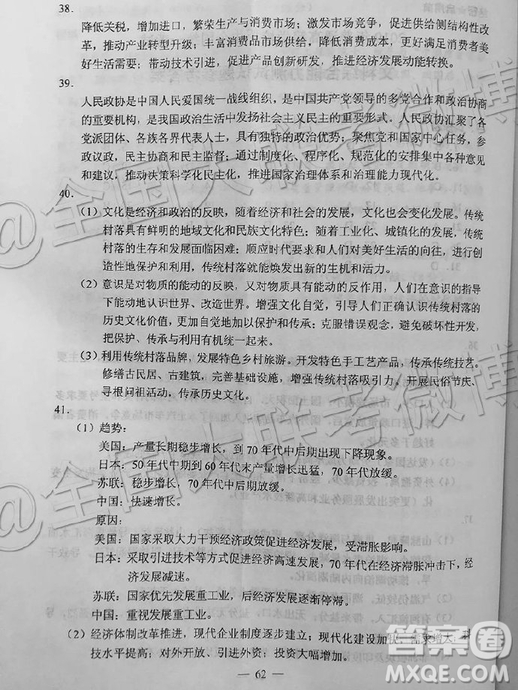 38.
降低关税，增加进口，繁荣生产与消费市场；激发市场竞争，促进供给侧结构性改
革，推动产业转型升级；丰富消费品市场供给，降低消费成本，更好满足消费者美
好生活需要；带动技术引进，促进产品创新研发，推进经济发展动能转换。
39.
人民政协是中国人民爱国统一战线组织，是中国共产党领导的多党合作和政治协商
的重要机构，是我国政治生活中发扬社会主义民主的重要形式。人民政协汇聚了各
党派团体、各族各界代表人士，具有独特的政治优势，聚焦党和国家中心任务，参
政议政，民主协商和民主监督；通过制度化、程序化、规范化的安排集中各种意见
和建议，推动决策科学化民主化，推进国家治理体系和治理能力现代化。
40.
（1）文化是经济和政治的反映，随着经济和社会的发展，文化也会变化发展。传统
村落具有鲜明的地域文化和民族文化特色；随着工业化、城镇化的发展，传统
村落的生存和发展面临困难；顺应时代要求和人们对美好生活的向往，进行创
造性地保护和利用，传统村落就能焕发出新的生机和活力。
（2）意识是对物质的能动的反映，又对物质具有能动的反作用，人们在意识的指导
下能动地认识世界、改造世界。增强文化自觉，引导人们正确认识传统村落的
历史文化价值，更加自觉地加以保护和传承；克服错误观念，避免破坏性开发，
把保护、传承与利用有机统一起来。
（3）利用传统村落品牌，发展特色乡村旅游。开发特色手工艺产品，传承传统技艺。
修缮古民居、古建筑，完善基础设施，增强传统村落吸引力。开展民俗节庆、
寻根问祖活动，传承历史文化。
41.
（1）趋势：
美国：产量长期稳步增长，到 70 年代中后期出现下降现象。
日本：50 年代中期到 60 年代末产量增长迅猛，70 年代放缓。
苏联：稳步增长，70 年代中后期放缓。
中国：快速增长。
原因：
美国：国家采取大力干预经济政策促进经济发展，受滞胀影响。
日本：采取引进技术等方式促进经济高速发展，70 年代在经济滞胀冲击下，经
济发展减速。
苏联：国家优先发展重工业，后经济发展逐渐停滞。
中国：重视发展重工业。
（2）经济体制改革推进，现代企业制度逐步建立；现代化建设加速，需求增大；科
技水平提高；对外开放、引进外资；投资大幅增加。
— 62 —
@全国大联考微博
答案圈